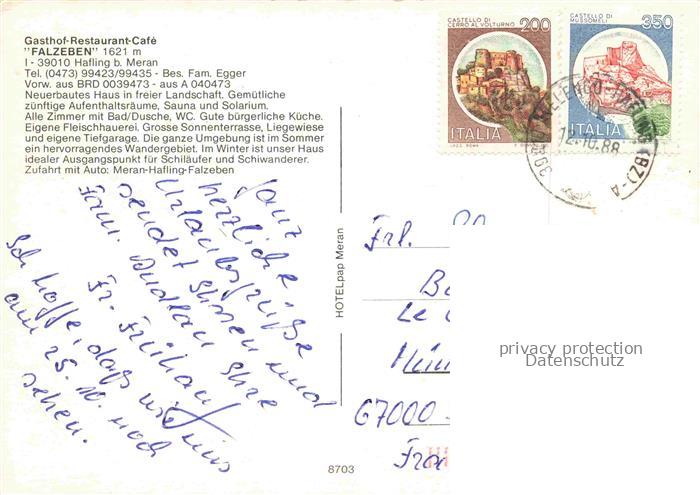 Gasthof-Restaurant-Café
"FALZEBEN" 1621 m
I - 39010 Hafling b. Meran
Tel. (0473) 99423/99435 - Bes. Fam. Egger
Vorw. aus BRD 0039473 - aus A 040473
Neuerbautes Haus in freier Landschaft. Gemütliche
zünftige Aufenthaltsräume, Sauna und Solarium.
Alle Zimmer mit Bad/Dusche, WC. Gute bürgerliche Küche.
Eigene Fleischhauerei. Grosse Sonnenterrasse, Liegewiese
und eigene Tiefgarage. Die ganze Umgebung ist im Sommer
ein hervorragendes Wandergebiet. Im Winter ist unser Haus
idealer Ausgangspunkt für Schiläufer und Schiwanderer.
Zufahrt mit Auto: Meran-Hafling-Falzeben
Ganz
herzliche
Urlaubsgrüße
sendet Ihnen und
Fam. Ihre
Fr. Frühauf
Ich hoffe, dass wir uns
am 25. 10. noch
sehen.
HOTELpap Meran
8703
CASTELLO DI
CERRO AL VOLTURNO
200
ITALIA
CASTELLO DI
MUSSOMELI
350
ITALIA
12.10.88
(BZ)-A
Frl.
Le
67000 -
privacy protection
Datenschutz